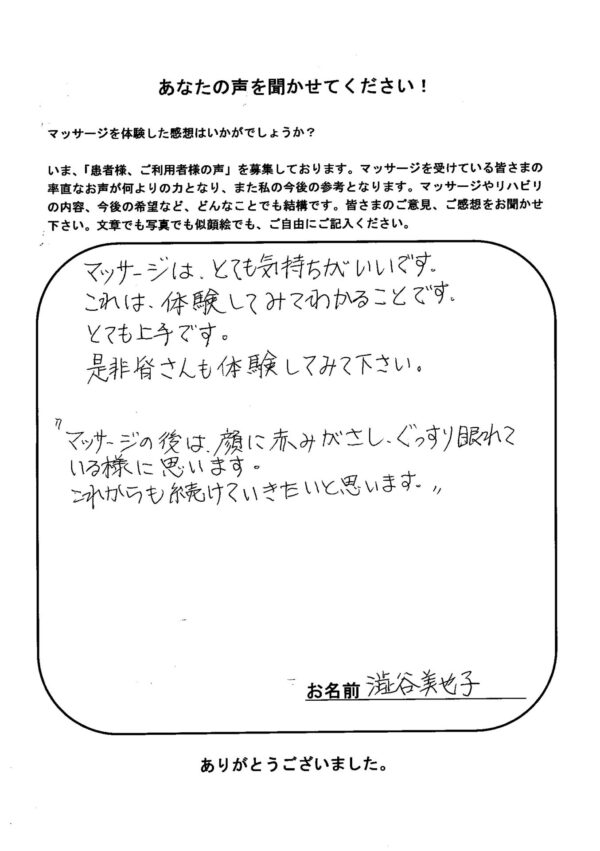 あなたの声を聞かせてください！
マッサージを体験した感想はいかがでしょうか？
いま、「患者様、ご利用者様の声」を募集しております。マッサージを受けている皆さまの
率直なお声が何よりの力となり、また私の今後の参考となります。マッサージやリハビリ
の内容、今後の希望など、どんなことでも結構です。皆さまのご意見、ご感想をお聞かせ
下さい。文章でも写真でも似顔絵でも、ご自由にご記入ください。
マッサージは、とても気持ちがいいです。
これは、体験してみてわかることです。
とても上手です。
是非皆さんも体験してみて下さい。
〃マッサージの後は、顔に赤みがさし、ぐっすり眠れて
いる様に思います。
これからも続けていきたいと思います。〃
お名前 澁谷美也子
ありがとうございました。